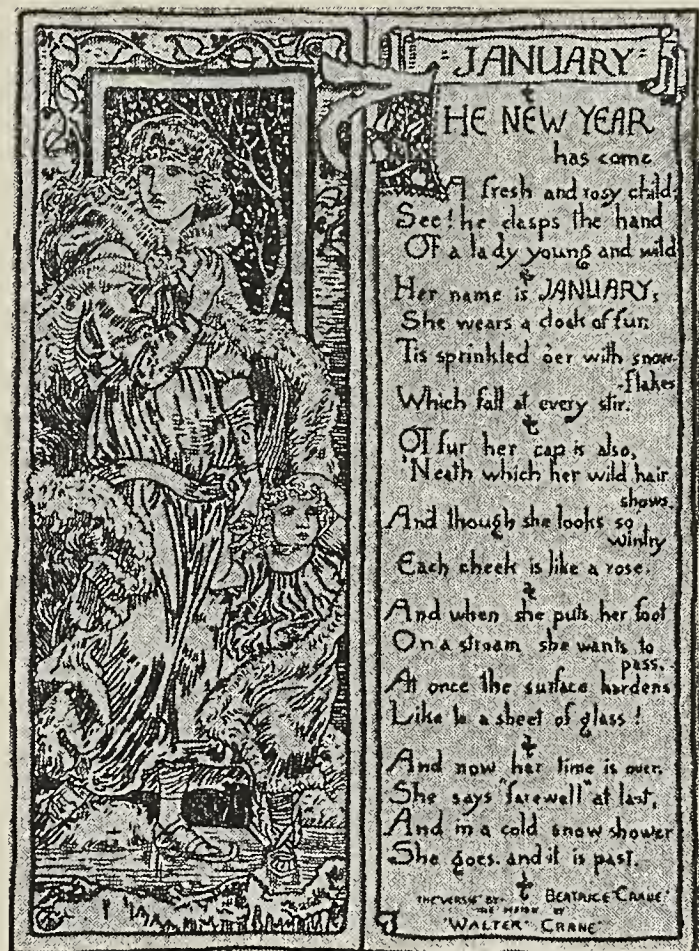 JANUARY
THE NEW YEAR
has come
A fresh and rosy child;
See! he clasps the hand
Of a lady young and wild
Her name is JANUARY,
She wears a cloak of fur
Tis sprinkled o'er with snow-
-flakes
Which fall at every stir.
Of fur her cap is also,
'Neath which her wild hair
shows.
And though she looks so
wintry
Each cheek is like a rose.
And when she puts her foot
On a stream she wants to
pass,
At once the surface hardens
Like to a sheet of glass!
And now her time is over,
She says "farewell" at last,
And in a cold snow shower
She goes. and it is past.
THE VERSE BY BEATRICE CRANE
THE BY
WALTER CRANE